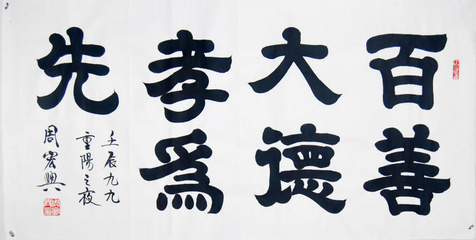 百善
大德
孝為
先
壬辰九九
重陽之夜
周宏興